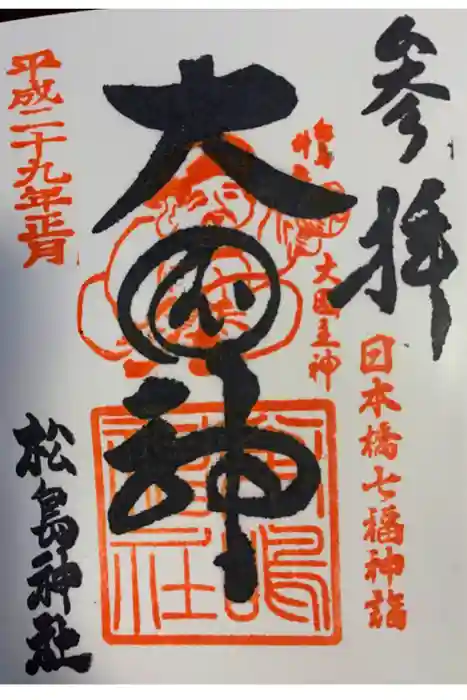 参拝
日本橋七福神詣
大国主神
大国神
松島神社
平成二十九年正月